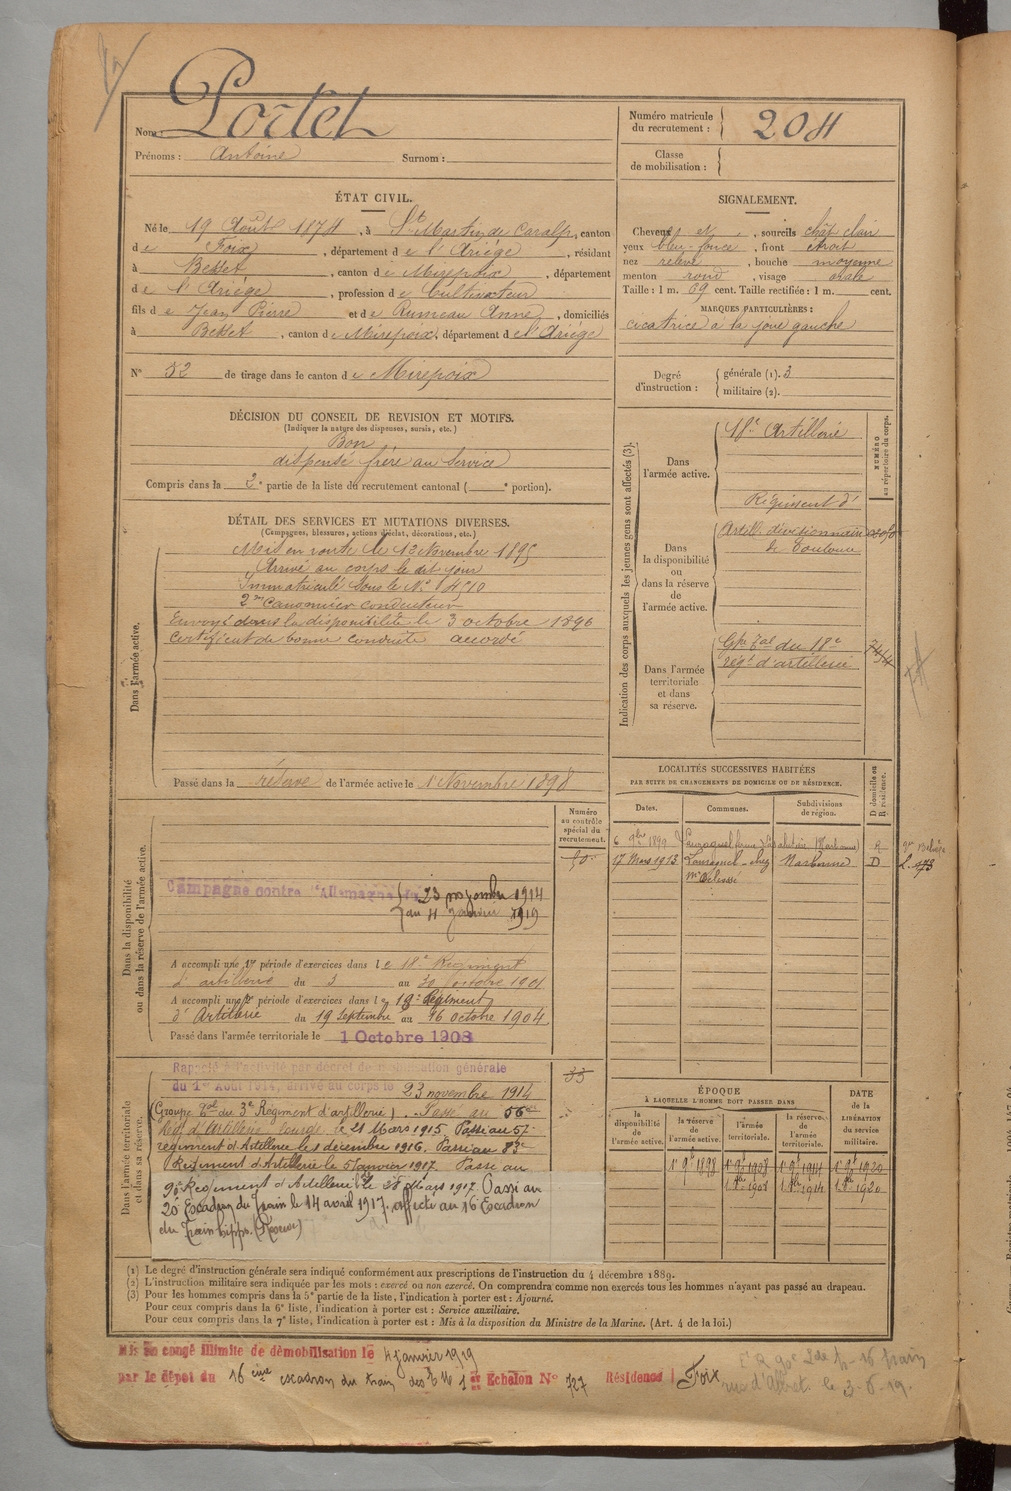 Nom : Portet
Prénoms : Antoine Surnom :
Numéro matricule du recrutement : 204
Classe de mobilisation :
ÉTAT CIVIL.
Né le 19 Août 1874, à St Martin de Caralp, canton
de Foix, département de l'Ariége, résidant
à Besset, canton de Mirepoix, département
de l'Ariége, profession de Cultivateur
fils de Jean Pierre et de Rumeau Anne, domiciliés
à Besset, canton de Mirepoix, département de l'Ariége
N° 52 de tirage dans le canton de Mirepoix
SIGNALEMENT.
Cheveux et , sourcils chât clair
yeux bleu foncé, front étroit
nez relevé, bouche moyenne
menton rond, visage ovale
Taille : 1 m. 69 cent. Taille rectifiée : 1 m. cent.
MARQUES PARTICULIÈRES :
cicatrice à la joue gauche
Degré d'instruction : générale (1). 3
militaire (2).
DÉCISION DU CONSEIL DE REVISION ET MOTIFS.
(Indiquer la nature des dispenses, sursis, etc.)
Bon
dispensé frère au service
Compris dans la 2e partie de la liste du recrutement cantonal ( e portion).
DÉTAIL DES SERVICES ET MUTATIONS DIVERSES.
(Campagnes, blessures, actions d'éclat, décorations, etc.)
Dans l'armée active.
Mis en route le 13 Novembre 1895
Arrivé au corps le dit jour
Immatriculé sous le N°
2me Canonnier conducteur
Envoyé dans la disponibilité le 3 octobre 1896
Certificat de bonne conduite accordé
Passé dans la réserve de l'armée active le 1 Novembre 1898
Indication des corps auxquels les jeunes gens sont affectés (3).
NUMÉRO au répertoire du corps.
Dans l'armée active.
18e Artillerie
Dans la disponibilité ou dans la réserve de l'armée active.
Régiment d'
Artill. divisionnaire
de Toulouse
Dans l'armée territoriale et dans sa réserve.
Gpe Tal du 18e
régt d'artillerie
LOCALITÉS SUCCESSIVES HABITÉES
PAR SUITE DE CHANGEMENTS DE DOMICILE OU DE RÉSIDENCE.
Dates. Communes. Subdivisions de région. D domicile ou R résidence.
6 9bre 1899 Narbonne R
17 Mars 1913 Narbonne D
Dans la disponibilité ou dans la réserve de l'armée active.
Numéro au contrôle spécial du recrutement.
Campagne contre l'Allemagne du 23 novembre 1914
au 4 Janvier 1919
A accompli une 1re période d'exercices dans le 18e Régiment
d'artillerie du 3 au 30 octobre 1901
A accompli une 2e période d'exercices dans le 19e Régiment
d'Artillerie du 19 Septembre au 16 octobre 1904
Passé dans l'armée territoriale le 1 Octobre 1908
Dans l'armée territoriale et dans sa réserve.
33
Rappelé à l'activité par décret de mobilisation générale
du 1er Août 1914, arrivé au corps le 23 novembre 1914
(Groupe Tal du 3e Régiment d'artillerie). Passé au 56e
Reg. d'Artillerie lourde le 21 Mars 1915. Passé au 57e
régiment d'Artillerie le 1 décembre 1916. Passé au 83e
Régiment d'Artillerie le 5 Janvier 1917. Passé au
90e Régiment d'Artillerie le 28 Mars 1917. Passé au
20e Escadron du Train le 14 avril 1917. affecté au 16e Escadron
du Train
ÉPOQUE
À LAQUELLE L'HOMME DOIT PASSER DANS
la disponibilité de l'armée active. la réserve de l'armée active. l'armée territoriale. la réserve de l'armée territoriale.
DATE de la LIBÉRATION du service militaire.
1er 9bre 1898 1er 9bre 1908 1er 9bre 1914 1er 9bre 1920
(1) Le degré d'instruction générale sera indiqué conformément aux prescriptions de l'instruction du 4 décembre 1889.
(2) L'instruction militaire sera indiquée par les mots : exercé ou non exercé. On comprendra comme non exercés tous les hommes n'ayant pas passé au drapeau.
(3) Pour les hommes compris dans la 5e partie de la liste, l'indication à porter est : Ajourné.
Pour ceux compris dans la 6e liste, l'indication à porter est : Service auxiliaire.
Pour ceux compris dans la 7e liste, l'indication à porter est : Mis à la disposition du Ministre de la Marine. (Art. 4 de la loi.)
Mis en congé illimité de démobilisation le 4 janvier 1919
par le dépôt du 16ème escadron du train des Echelon N° 727 Résidence Foix